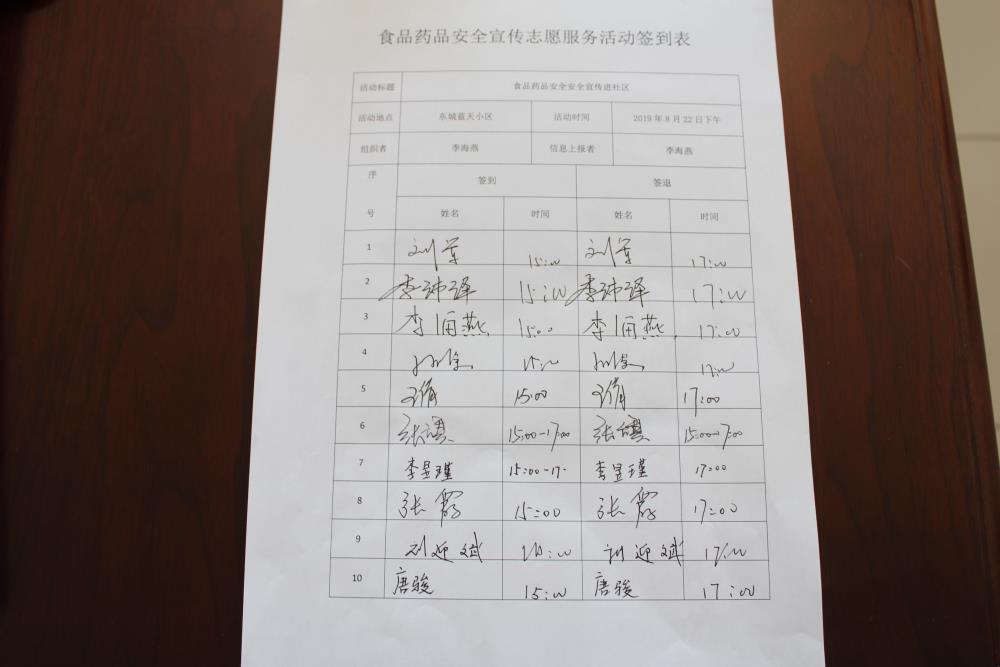 食品药品安全宣传志愿服务活动签到表
活动标题 食品药品安全安全宣传进社区
活动地点 东城蓝天小区 活动时间 2019年8月22日下午
组织者 李海燕 信息上报者 李海燕
序号 签到 签退
姓名 时间 姓名 时间
1 刘军 15:00 刘军 17:00
2 李沛泽 15:00 李沛泽 17:00
3 李海燕 15:00 李海燕 17:00
4 15:00 17:00
5 王倩 15:00 王倩 17:00
6 张 15:00-17:00 张 15:00-17:00
7 李昱瑾 15:00-17. 李昱瑾 17:00
8 张霞 15:00 张霞 17:00
9 刘迎斌 刘迎斌 17:00
10 唐骏 15:00 唐骏 17:00